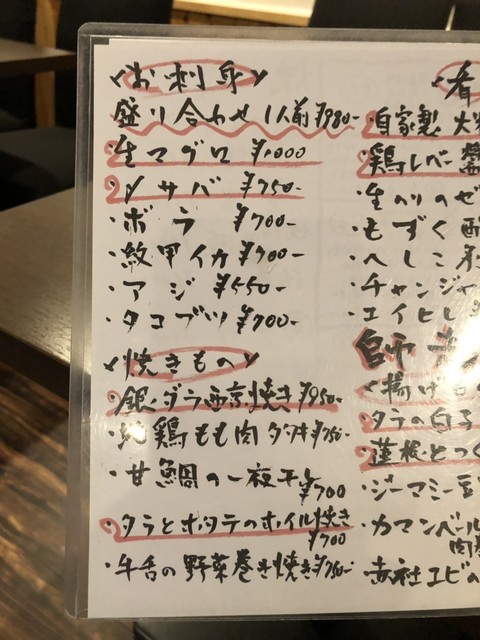 〈お刺身〉
盛り合わせ 1人前¥980-
・生マグロ ¥1000
・〆サバ ¥750-
・ボラ ¥700-
・紋甲イカ ¥700-
・アジ ¥550-
・タコブツ ¥700-
〈焼きもの〉
・銀ダラ西京焼き¥950-
・地鶏もも肉タタキ¥750-
・甘鯛の一夜干し
¥700
・タラとホタテのホイル焼き
¥700
・牛舌の野菜巻き焼き¥750-
〈肴
・自家製
・鶏レバー
・生のりの
・もずく
・へしこ
・チャンジャ
・エイヒレ
〈揚げもの
・タラの白子
・蓮根
・ジーマミー豆
・カマンベール
・赤社エビの